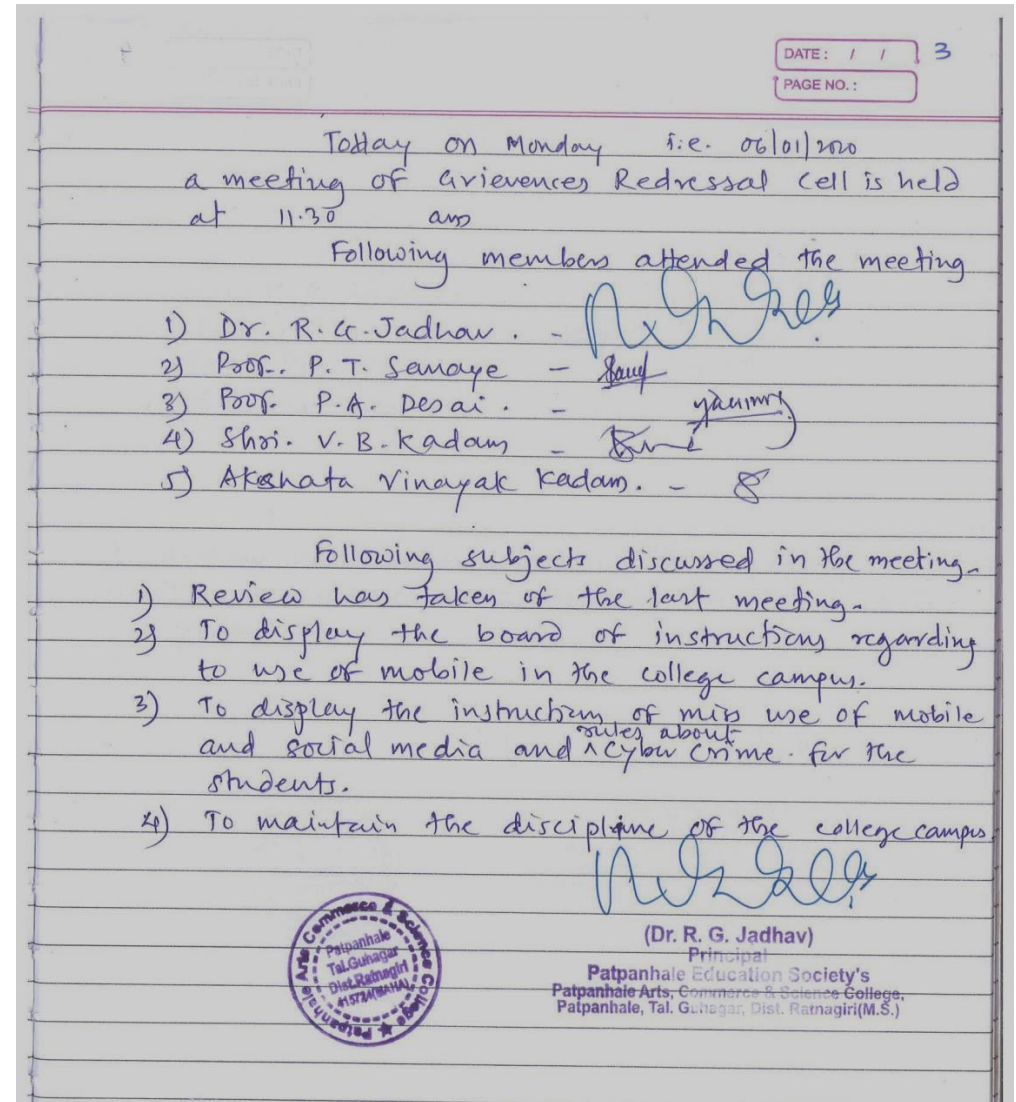 DATE: / / 3
PAGE NO.:
Today on Monday i.e. 06/01/2020
a meeting of Grievences Redressal Cell is held
at 11.30 am
Following members attended the meeting
1) Dr. R. G. Jadhav. -
2) Prof. P. T. Sanaye -
3) Prof. P. A. Desai. -
4) Shri. V. B. Kadam -
5) Akshata Vinayak Kadam. -
Following subjects discussed in the meeting.
1) Review has taken of the last meeting.
2) To display the board of instructions regarding
to use of mobile in the college campus.
3) To display the instructions of miss use of mobile
and social media and rules about cyber crime. for the
students.
4) To maintain the discipline of the college campus.
Patpanhale Arts Commerce & Science College
Patpanhale
Tal.Guhagar
Dist.Ratnagiri
415724(MAHA)
(Dr. R. G. Jadhav)
Principal
Patpanhale Education Society's
Patpanhale Arts, Commerce & Science College,
Patpanhale, Tal. Guhagar, Dist. Ratnagiri(M.S.)